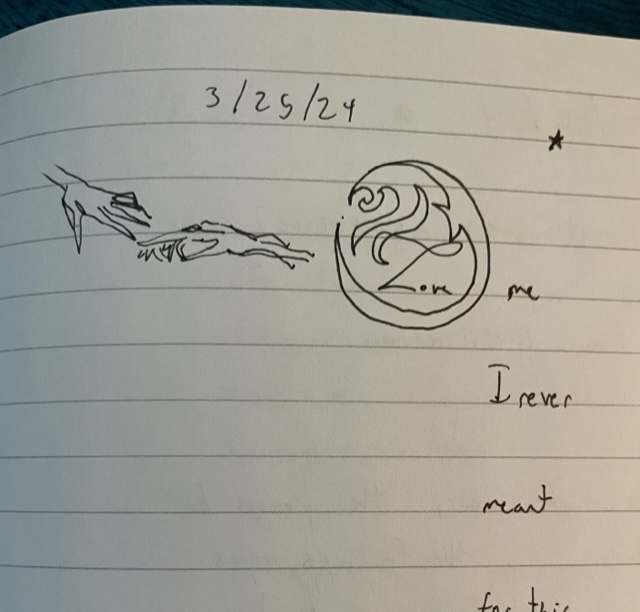 3/25/24
Love me
I never
meant
for this